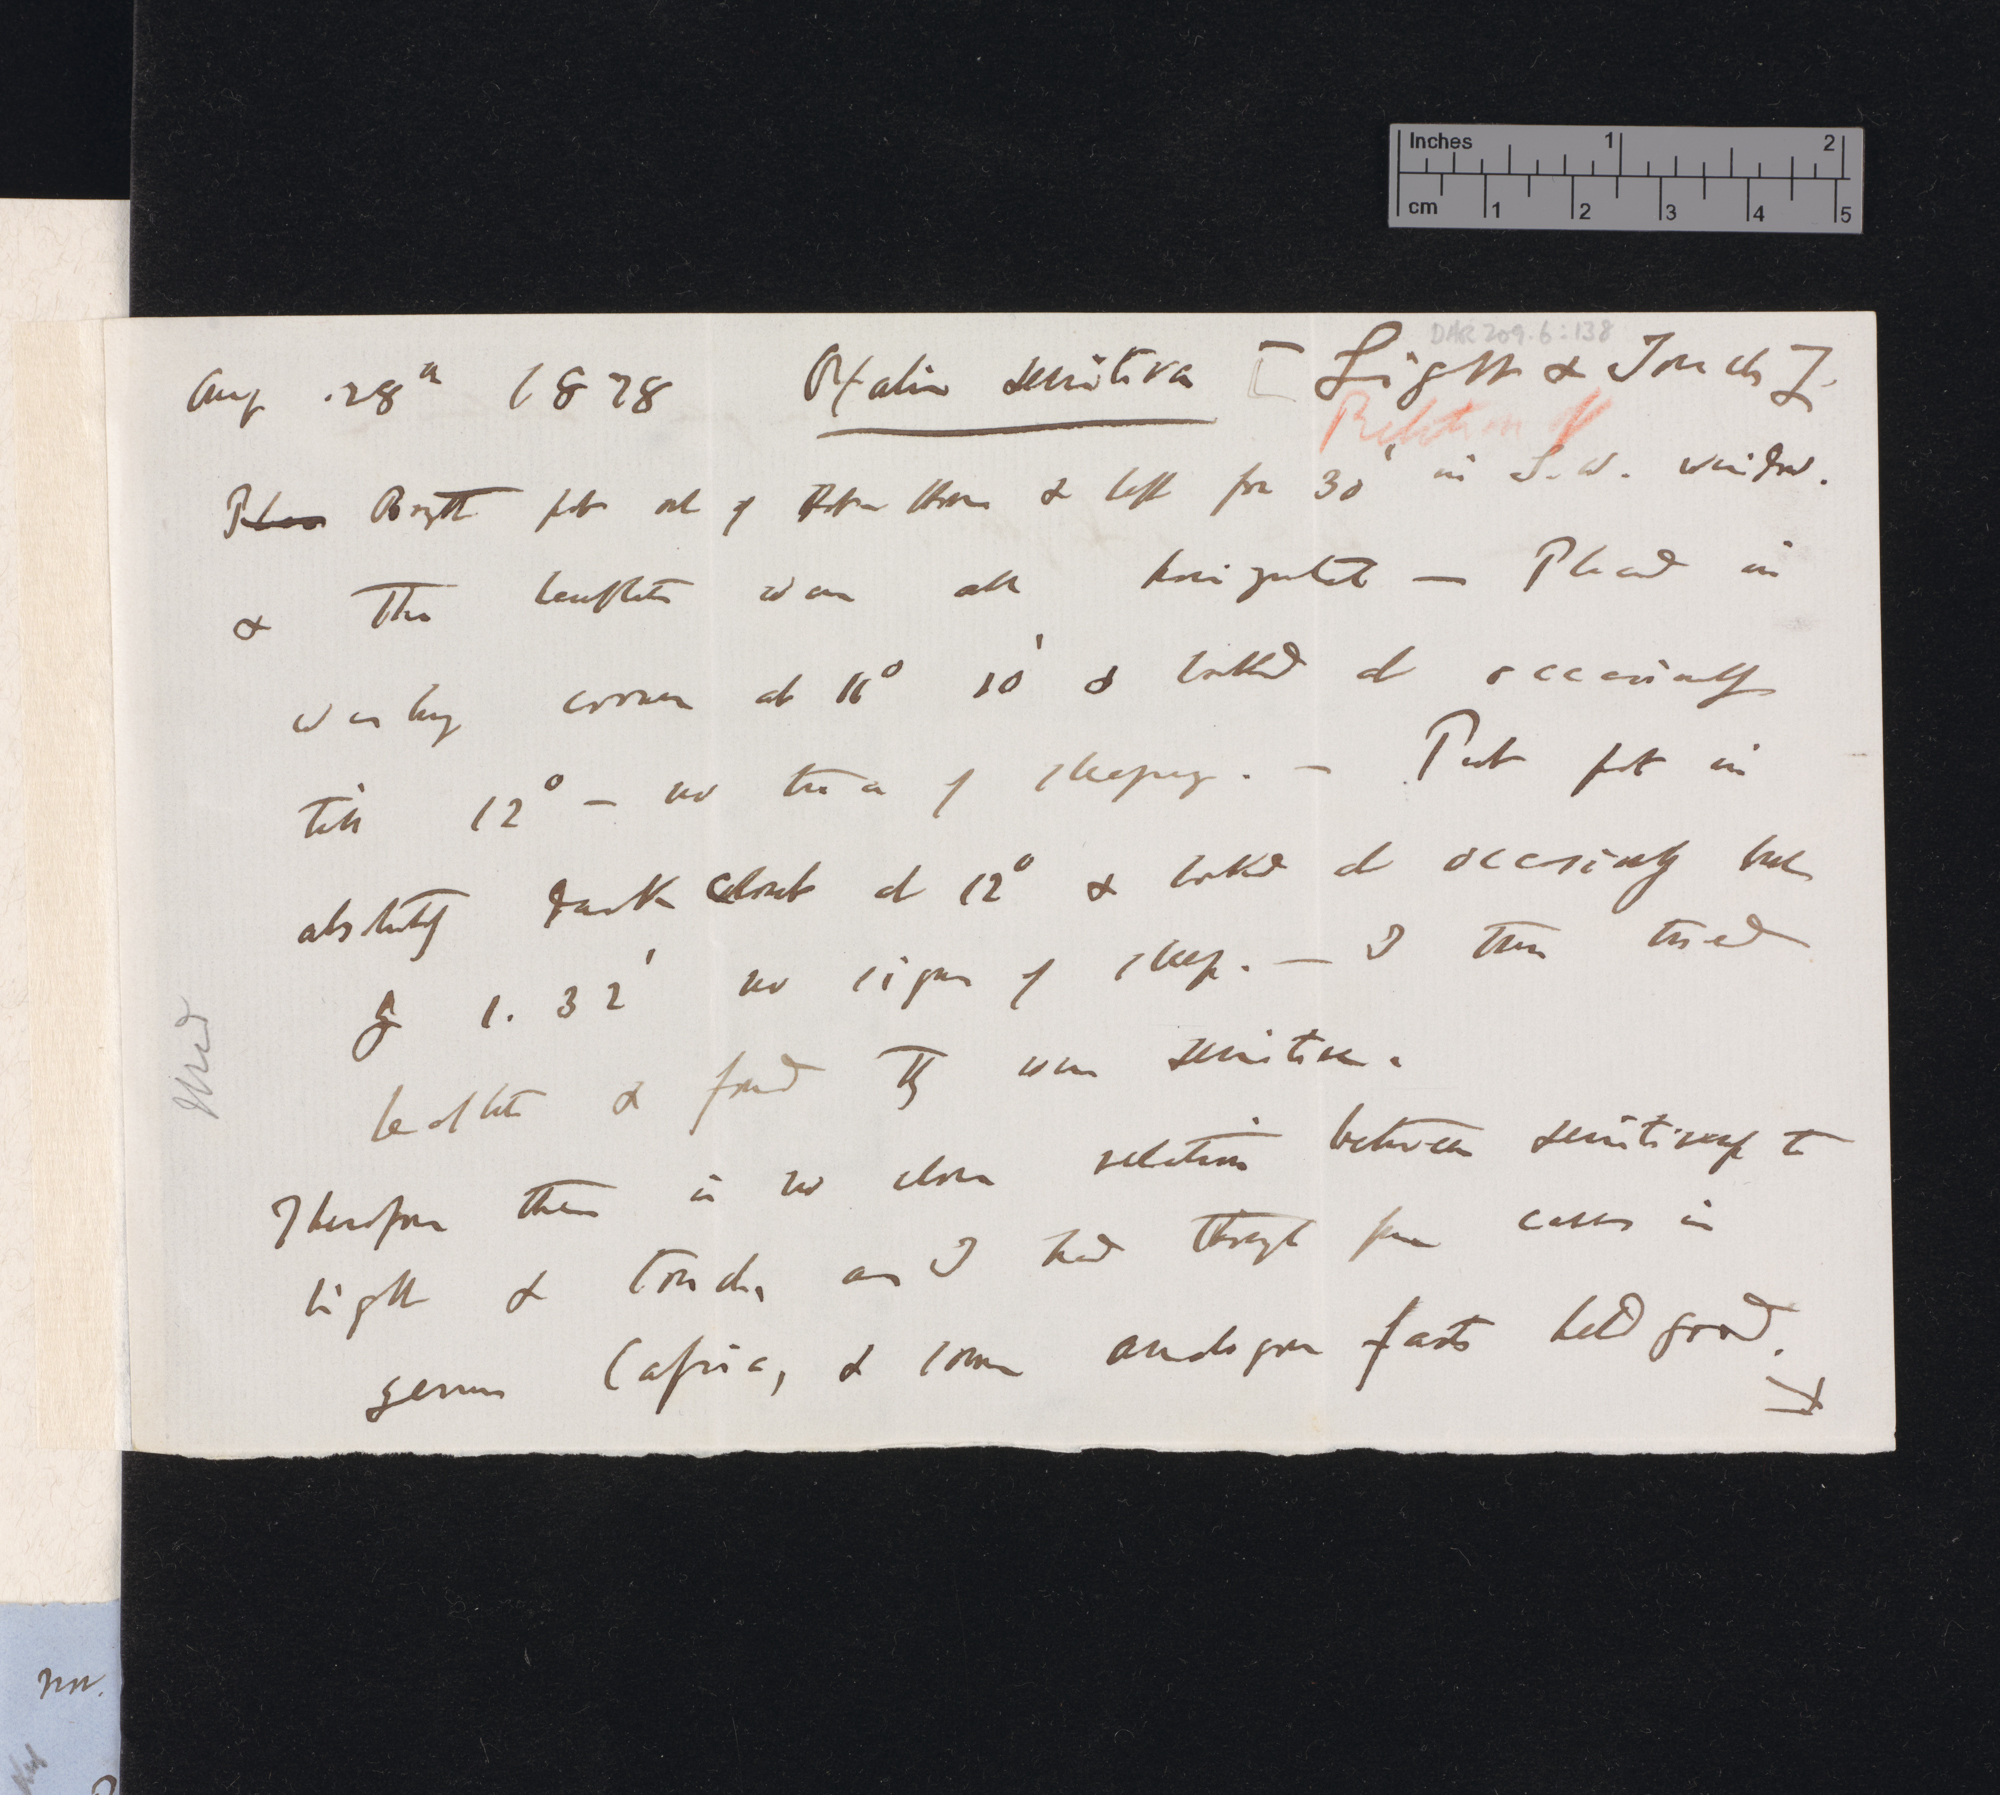 DAR 209.6:138
Aug. 28th 1878 Oxalis sensitiva [Light & Touch].
Relation of
Brought pot out of Hot House & left for 30' in S.W. window.
& the leaflets were all horizontal — Placed in
corner at 11° 10' & looked at occasionally
till 12° — no trace of sleeping. — Put pot in
absolutely dark closet at 12° & looked at occasionally but
1. 32' no signs of sleep. — I then tried
leaflets & found they were sensitive.
Therefore there is no close relation between sensitiveness to
light & touch, as I had thought from cases in
genus Cassia, & some analogous facts held good.
Used
Inches 1 2
cm 1 2 3 4 5
Nov.